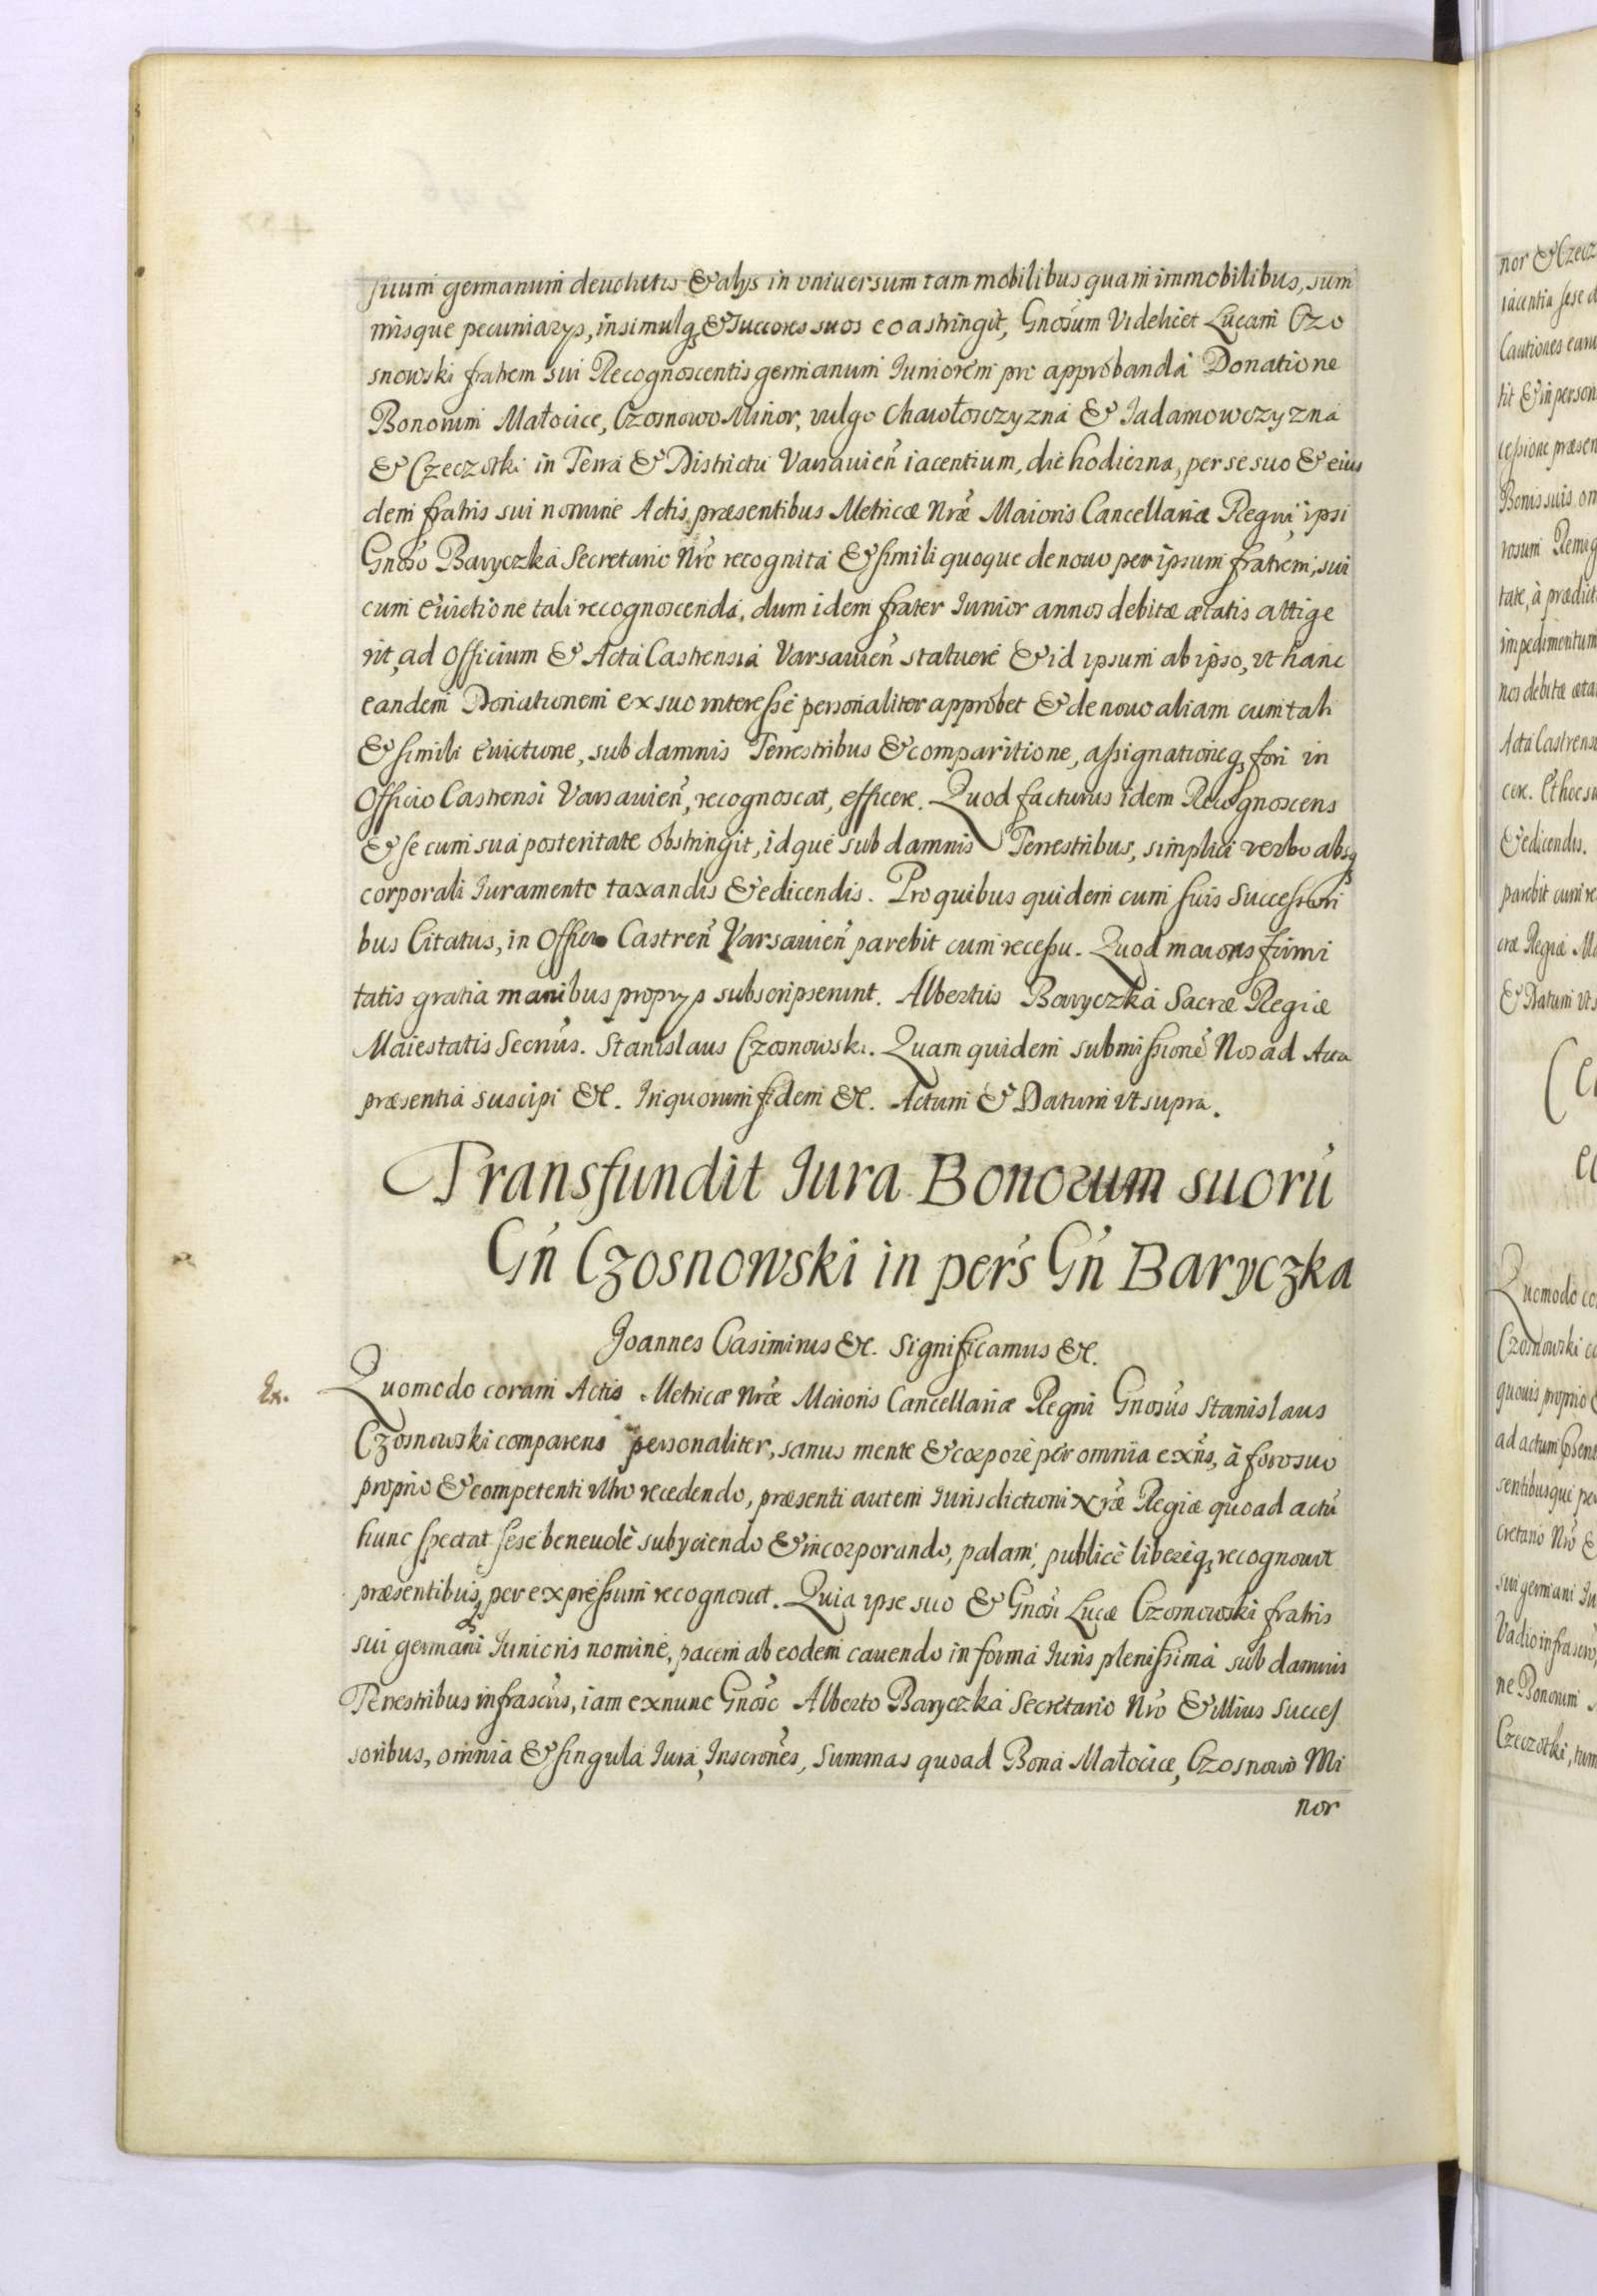 suum germanum deuolutis & alijs in vniuersum tam mobilibus quam immobilibus, sum
misque pecuniarys, insimulq; & succores suos coastringit, Gnosum Videlicet Lucam Czo
snowski fratrem sui Recognoscentis germanum Iuniorem pro approbanda Donatione
Bonorum Małocice, Czosnowo Minor, vulgo Chawłowczyzna & Iadamowczyzna
& Czeczotki in Terra & Districtu Varsauien̄ iacentium, die hodierna, per se suo & eius
dem fratris sui nomine Actis præsentibus Metricæ Nræ Maioris Cancellariæ Regni ipsi
Gnoso Baryczka Secretario Nro recognita & simili quoque de nouo per ipsum fratrem sui
cum euictione tali recognoscenda, dum idem frater Iunior annos debitæ ætatis attige
rit, ad Officium & Acta Castrensia Varsauien̄ statuere & id ipsum ab ipso, vt hanc
eandem Donationem ex suo interesse personaliter approbet & de nouo aliam cum tali
& simili euictione, sub damnis Terrestribus & comparitione, assignationeq; fori in
Officio Castrensi Varsauien̄, recognoscat, efficere. Quod facturus idem Recognoscens
& se cum sua posteritate obstringit, idque sub damnis Terrestribus, simplici verbo absq;
corporali Iuramento taxandis & edicendis. Pro quibus quidem cum suis Successori
bus Citatus, in Officio Castren̄ Varsauien̄ parebit cum recessu. Quod maioris firmi
tatis gratia manibus proprys subscripserunt. Albertus Baryczka Sacræ Regiæ
Maiestatis Secrius. Stanislaus Czosnowski. Quam quidem submissionē Nos ad Acta
præsentia suscipi &c. In quorum fidem &c. Actum & Datum vt supra.
Transfundit Iura Bonorum suorū
Gn̄ Czosnowski in pers Gn̄ Baryczka
Joannes Casimirus &c. Significamus &c.
Ex. Quomodo coram Actis Metricæ Nræ Maioris Cancellariæ Regni Gnosus Stanislaus
Czosnowski comparens personaliter, sanus mente & corpore per omnia exn̄s, à foro suo
proprio & competenti vltro recedendo, præsenti autem Iurisdictioni Nræ Regiæ quoad actū
hunc spectat sese beneuolè subyciendo & incorporando, palam, publicè liberèq; recognouit
præsentibusq; per expressum recognoscit. Quia ipse suo & Gnosi Lucæ Czosnowski fratris
sui germani Iunioris nomine, pacem ab eodem cauendo in forma Iuris plenissima sub damnis
Terrestribus infrascris, iam exnunc Gnoso Alberto Baryczka Secretario Nro & illius Succes
soribus, omnia & singula Iura, Inscrones, Summas quoad Bona Małocice, Czosnowo Mi
nor